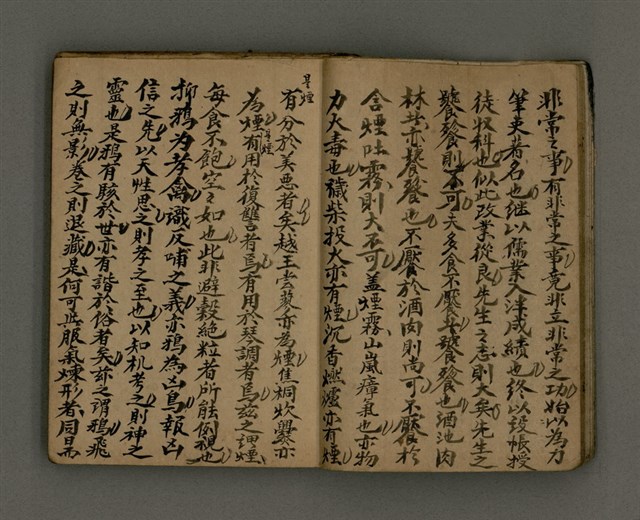 非常之事有非常之事竟非立非常之功始以為力
筆吏著名也继以儒業入泮成績也終以設帳授
徒収科也似此改業從良先生之志則大矣先生之
饕餮則不可夫多食不饜其饕餮也酒池肉
林共亦饕餮也不饜於酒肉則尚可不饜於
含煙吐霧則大不可蓋煙霧山嵐瘴氣也亦物
力火毒也穢柴投火亦有煙沉香燃爐亦有煙
有分於美惡者矣越王尝蓼亦為煙焦桐炊爨亦
為煙有用於復讐者焉有用於琴調者焉茲之謂煙
是煙
是煙
每食不飽空々如也此非避穀絶粒者所能例視也
抑鴉为孝禽識反哺之義亦鴉為凶鳥報凶
信之先以天性思之則孝之至也以知机考之則神之
靈也是鴉有駭於世亦有諧於俗者矣茲之謂鴉飛
之則無影卷之則退藏是何可與服氣煉形者同日而